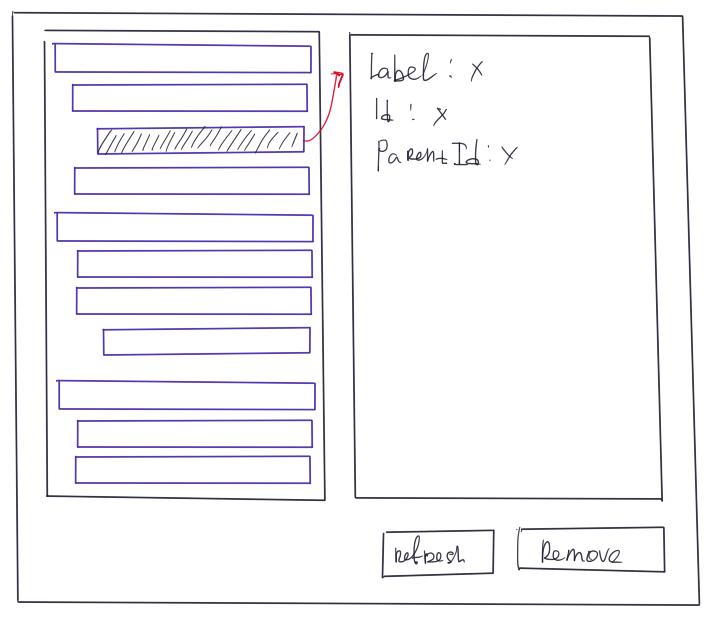 Label : x
Id : x
ParentId : x
refresh
Remove